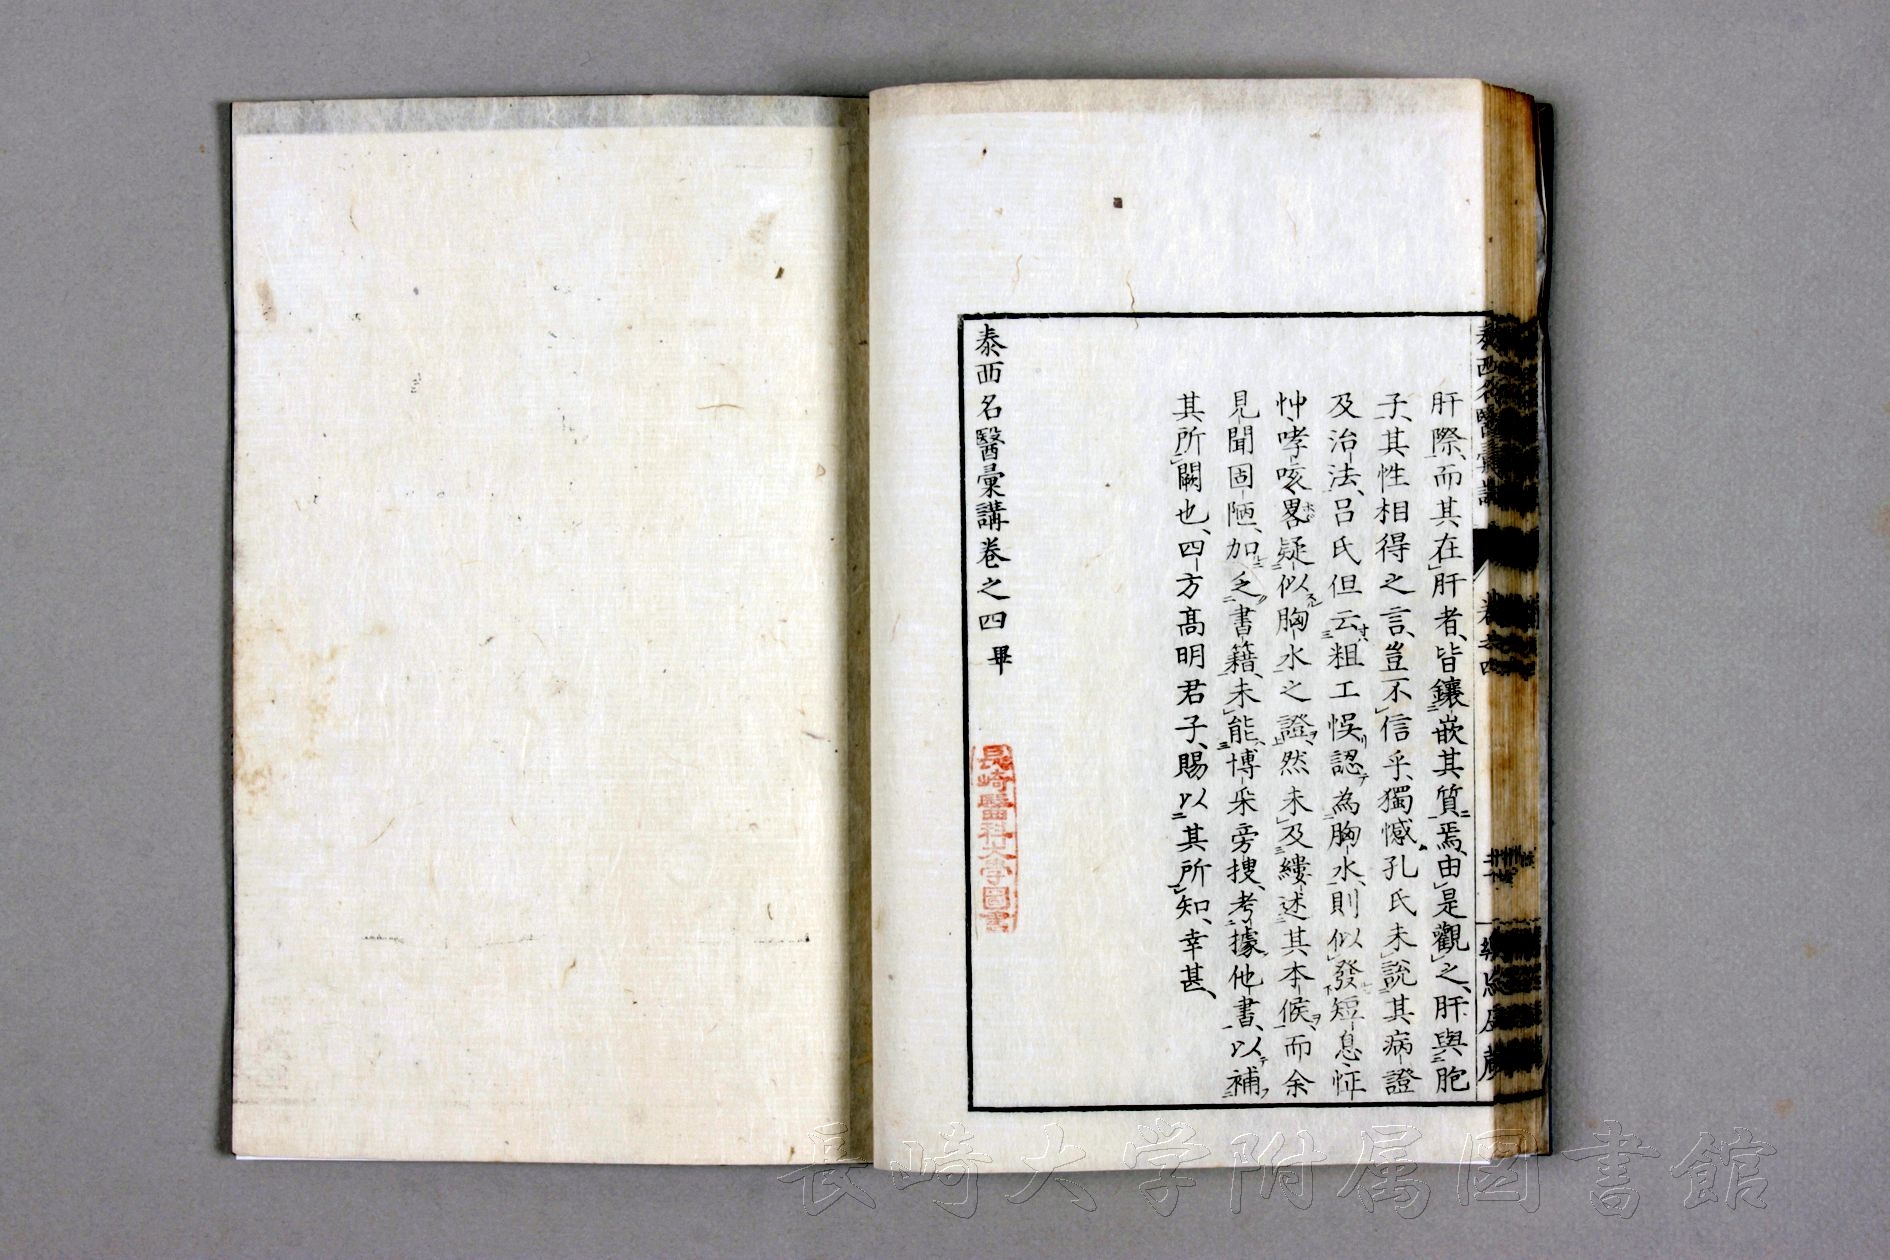 肝際、而其在肝者、皆鑲嵌其質焉、由是觀之、肝與胞
子、其性相得之言、豈不信乎、獨憾孔氏未說其病證
及治法、呂氏但云粗工悞認為胸水、則似發短息怔
忡、哮咳畧疑似胸水之證、然未及縷述其本候、而余
見聞固陋、加乏書籍、未能博采旁搜、考據他書、以補
其所闕也、四方高明君子、賜以其所知、幸甚、
泰西名醫彙講卷之四畢
長崎醫科大學圖書
泰西名醫彙講
卷之四
長崎大学附属図書館